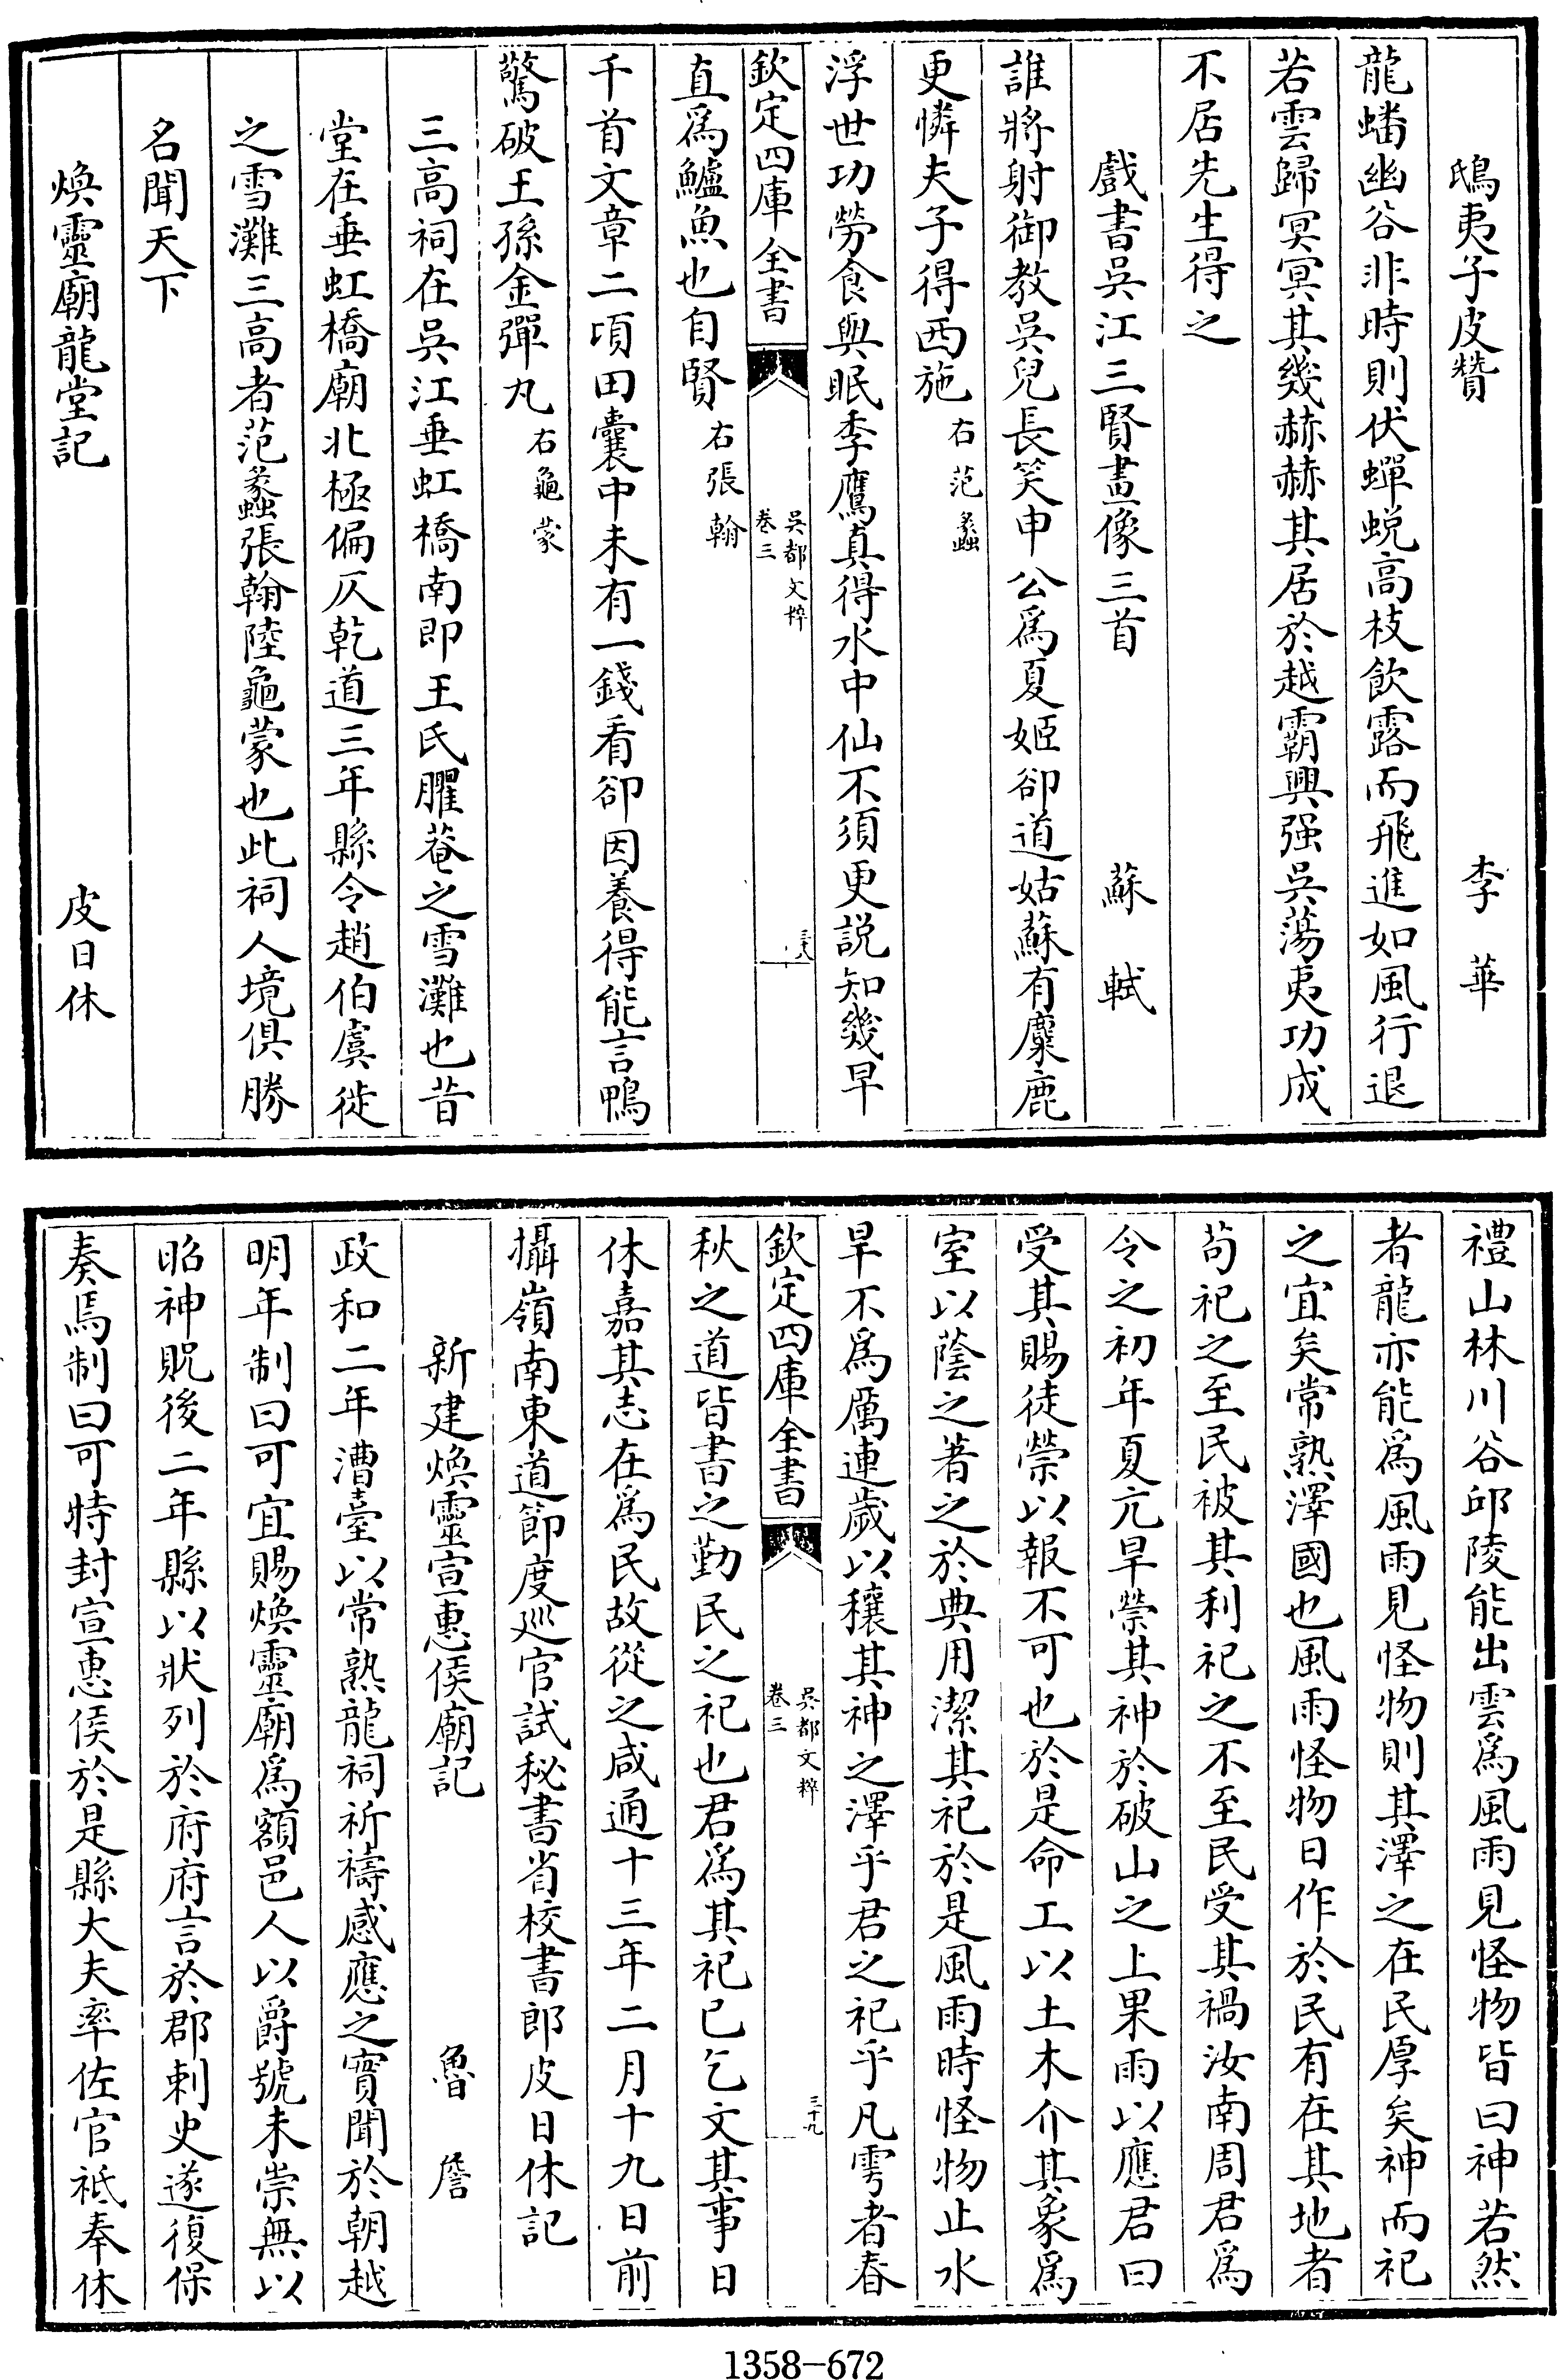 鴟夷子皮贊　李華
龍蟠幽谷非時則伏蟬蛻高枝飲露而飛進如風行退
若雲歸冥冥其幾赫赫其居於越霸興强吳蕩夷功成
不居先生得之
戲書吳江三賢畫像三首　蘇軾
誰將射御教吳兒長笑申公為夏姬卻道姑蘇有麋鹿
更憐夫子得西施右范蠡
浮世功勞食與眠季鷹真得水中仙不須更說知幾早
欽定四庫全書　吳都文粹　卷三　三十八
直為鱸魚也自賢右張翰
千首文章二頃田囊中未有一錢看卻因養得能言鴨
驚破王孫金彈丸右龜蒙
三高祠在吳江垂虹橋南即王氏臞菴之雪灘也昔
堂在垂虹橋廟北極偏仄乾道三年縣令趙伯虞徙
之雪灘三高者范蠡張翰陸龜蒙也此祠人境俱勝
名聞天下
煥靈廟龍堂記　皮日休
禮山林川谷邱陵能出雲為風雨見怪物皆曰神若然
者龍亦能為風雨見怪物則其澤之在民厚矣神而祀
之宜矣常熟澤國也風雨怪物日作於民有在其地者
苟祀之至民被其利祀之不至民受其禍汝南周君為
令之初年夏亢旱禜其神於破山之上果雨以應君曰
受其賜徒禜以報不可也於是命工以土木介其象為
室以蔭之著之於典用潔其祀於是風雨時怪物止水
旱不為厲連歲以穰其神之澤乎君之祀乎凡雩者春
欽定四庫全書　吳都文粹　卷三　三十九
秋之道皆書之勤民之祀也君為其祀已乞文其事日
休嘉其志在為民故從之咸通十三年二月十九日前
攝嶺南東道節度巡官試秘書省校書郎皮日休記
新建煥靈宣惠侯廟記　魯詹
政和二年漕臺以常熟龍祠祈禱感應之實聞於朝越
明年制曰可宜賜煥靈廟為額邑人以爵號未崇無以
昭神貺後二年縣以狀列於府府言於郡刺史遂復保
奏焉制曰可特封宣惠侯於是縣大夫率佐官祇奉休
1358-672